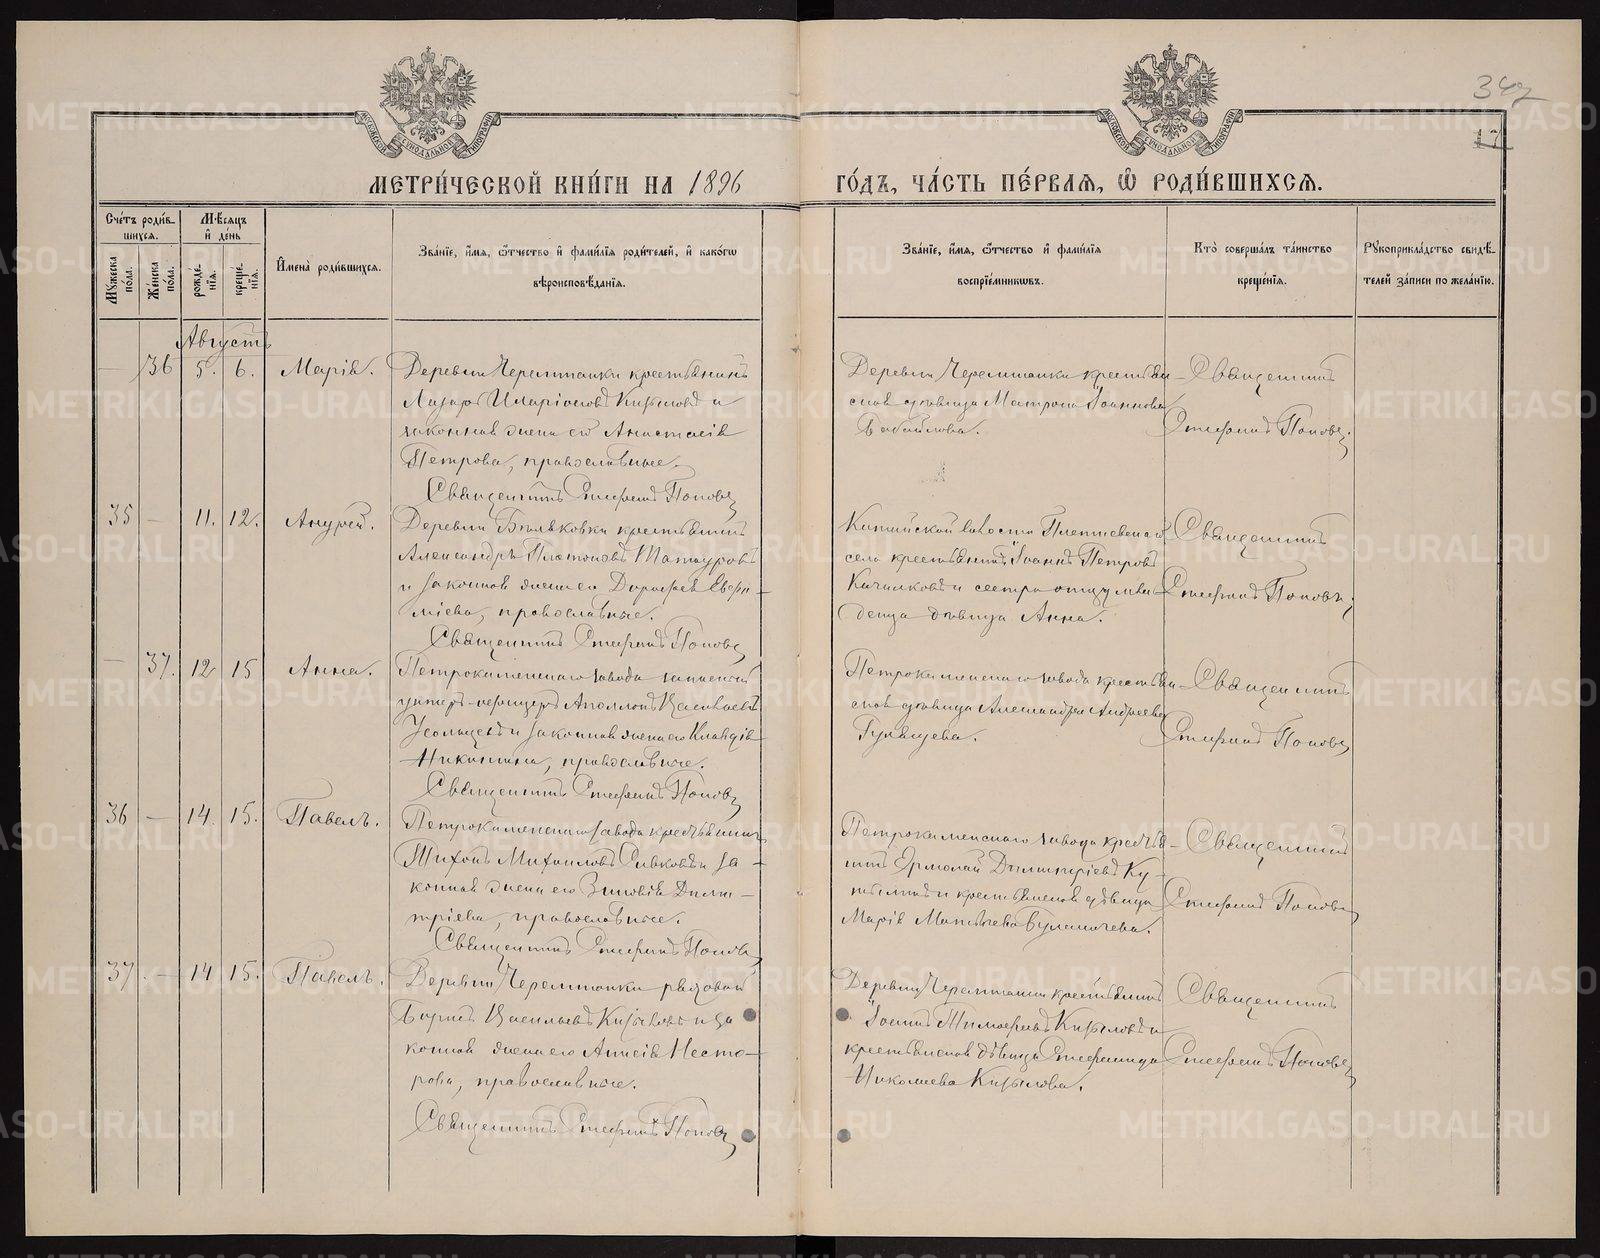 347
17
МОСКОВСКОЙ СѴНОДАЛЬНОЙ ТИПОГРАФІИ
МОСКОВСКОЙ СѴНОДАЛЬНОЙ ТИПОГРАФІИ
МЕТРИ́ЧЕСКОЙ КНИ́ГИ НА 1896
ГО́ДЪ, ЧА́СТЬ ПЕ́РВАЯ, Ѡ҆ РОДИ́ВШИХСЯ.
Сче́тъ роди́вшихся.
Мꙋ́жеска по́ла.
Же́нска по́ла.
Мѣ́сяцъ и҆ де́нь
рожде́нїя.
креще́нїя.
И҆мена̀ роди́вшихся.
Зва́нїе, и҆́мя, ѻ҆́тчество и҆ фами́лїя роди́телей, и҆ како́гѡ
вѣроисповѣ́данїя.
Зва́нїе, и҆́мя, ѻ҆́тчество и҆ фами́лїя
воспрїе́мникѡвъ.
Кто̀ соверша́лъ та́инство
креще́нїя.
Рꙋкоприкла́дство свидѣ́-
телей за́писи по жела́нїю.
Августъ
— 36 5. 6. Марія.
Деревни Черемшанки крестьянинъ
Лазарь Иларіоновъ Кирѣловъ и
законная жена его Анастасія
Петрова, православные.
Священникъ Стефанъ Поповъ
Деревни Черемшанки крестьян-
ская дѣвица Матрона Іоаннова
Священникъ
Стефанъ Поповъ.
35 — 11. 12. Андрей.
Деревни крестьянинъ
Александръ Платоновъ Татауровъ
и законная жена его Дорофея Евфи-
міева, православные.
Священникъ Стефанъ Поповъ
села крестьянинъ Іоаннъ Петровъ
и сестра отцу мла-
денца дѣвица Анна.
Священникъ
Стефанъ Поповъ.
— 37. 12 15 Анна.
Петрокаменскаго завода запасный
унтеръ-офицеръ Аполлонъ Васильевъ
Усольцевъ и законная жена его Клавдія
Никитина, православные.
Священникъ Стефанъ Поповъ
Петрокаменскаго завода крестьян-
ская дѣвица Александра Андреева
Священникъ
Стефанъ Поповъ
36 — 14. 15. Павелъ.
Петрокаменскаго завода крестьянинъ
Тихонъ Михаиловъ Сивковъ и за-
конная жена его Зиновія Дими-
тріева, православные.
Священникъ Стефанъ Поповъ
Петрокаменскаго завода крестья-
нинъ Ермолай Димитріевъ Ку-
и крестьянская дѣвица
Марія Матвѣева
Священникъ
Стефанъ Поповъ
37 — 14 15. Павелъ.
Деревни Черемшанки рядовой
Борисъ Васильевъ Кирѣловъ и за
конная жена его Анисія Несто-
рова, православные.
Священникъ Стефанъ Поповъ
Деревни Черемшанки крестьянинъ
Іоаннъ Тимофеевъ Кирѣловъ и
крестьянская дѣвица Стефанида
Николаева Кирѣлова.
Священникъ
Стефанъ Поповъ
METRIKI.GASO-URAL.RU